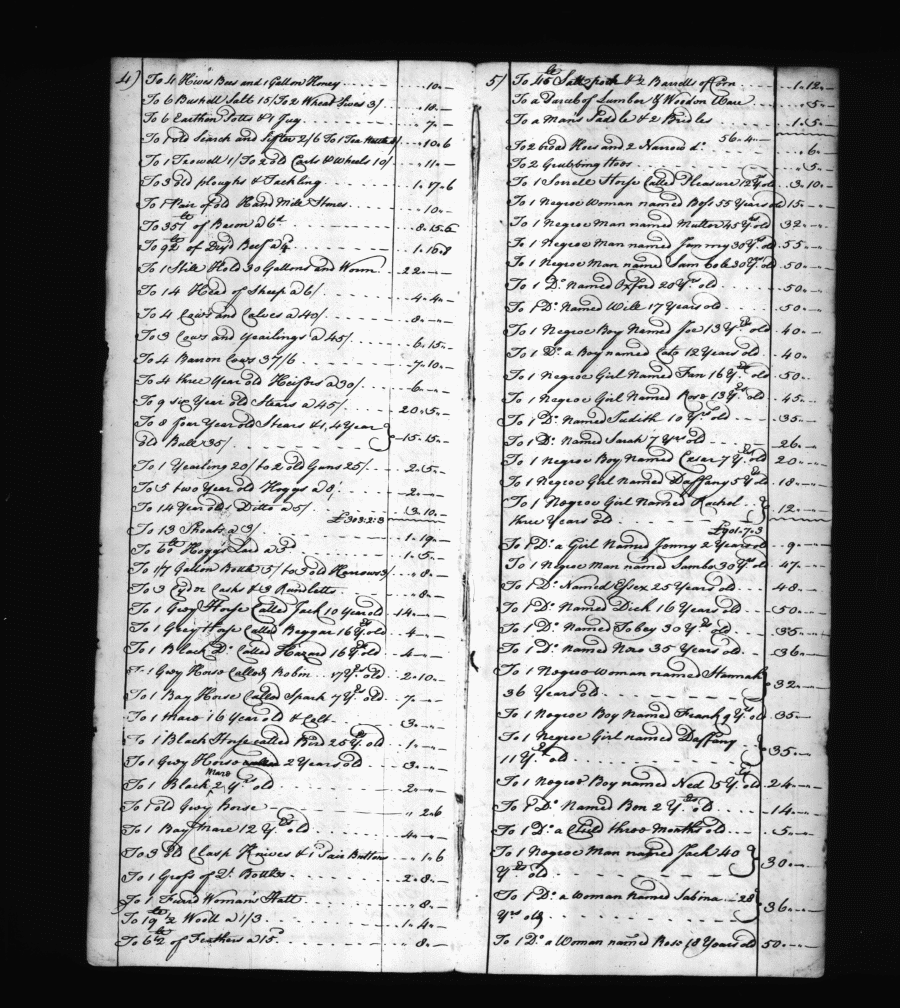 4)
To 4 Hives Bees and 1 Gallon Honey .. 10 ..
To 6 Bushell Salt 15/ To 2 Wheat Sives 3/ .. 18 ..
To 6 Earthen Potts & 1 Jug .. 7 ..
To 1 old Search and Sifter 2/6 To 1 Tea Kettle 8/ .. 10 .. 6
To 1 Trowell 1/ To 2 old Carts & Wheels 10/ .. 11 ..
To 3 old ploughs & Tackling 1 .. 17 .. 6
To 1 Pair of old Hand Mill Stones .. 10 ..
To 351 lb of Bacon a 6d 8 .. 15 .. 6
To 92 lb of Dry'd Beef a 4d 1 .. 10 .. 8
To 1 Still Hold 30 Gallons and Worm 22 .. ..
To 14 Head of Sheep a 6/ 4 .. 4 ..
To 4 Cows and Calves a 40/ 8 .. ..
To 3 Cows and Yearlings a 45/ 6 .. 15 ..
To 4 Barron Cows 37/6 7 .. 10 ..
To 4 three Year old Heifers a 30/ 6 .. ..
To 9 six Year old Stears a 45/ 20 .. 5 ..
To 8 four Year old Stears & 1, 4 Year
old Bull 35/ 15 .. 15 ..
To 1 Yearling 20/ to 2 old Guns 25/ 2 .. 5 ..
To 5 two Year old Hoggs a 8/ 2 .. ..
To 14 Year olds Ditto a 5/ 3 .. 10 ..
£303 : 2 : 3
To 13 Shoats a 3/ 1 .. 19 ..
To 60 lb Hogg's Lard a 5d 1 .. 5 ..
To 1 7 Gallon Bottle 5/ to 3 old Harrows 3/ .. 8 ..
To 3 Cyder Casks & 3 Rundletts .. 8 ..
To 1 Grey Horse Called Jack 10 Year old 14 .. ..
To 1 Grey Horse Called Beggar 16 Yrs. old 4 .. ..
To 1 Black Do. Called Hazard 16 Yrs. old 4 .. ..
To 1 Grey Horse Called Robin 17 Yrs. old 2 .. 10 ..
To 1 Bay Horse Called Spark 7 Yrs. old 7 .. ..
To 1 mare 16 Year old & Colt 3 .. ..
To 1 Black Horse called Bird 25 Yrs. old 1 .. ..
To 1 Grey Horse 2 Years old 3 .. ..
Mare
To 1 Black 2 Yrs. old 2 .. ..
To 1 old Grey Horse .. 2 .. 6
To 1 Bay Mare 12 Yrs old 4 .. ..
To 3 Old Clasp Knives & 1 Pair Buttons .. 1 .. 6
To 1 Gross of Qt. Bottles 2 .. 8 ..
To 1 Furrd Woman's Hatt .. 8 ..
To 19 lb 1/2 Wooll a 1/3 1 .. 4 ..
To 6 lb 1/2 of Feathers a 15d .. 8 ..
5)
To 45 lb Salt pork & 2 Barrells of Corn 1 .. 12 ..
To a Parcel of Lumber & Wooden Ware .. 5 ..
To a Mans Saddle & 2 Bridles 1 .. 5 ..
56 .. 4 ..
To 2 broad Hoes and 2 Narrow do. .. 6 ..
To 2 Grubbing Hoes .. 5 ..
To 1 Sorrell Horse Called Pleasure 12 Yrs old 3 .. 10 ..
To 1 Negroe Woman named Bess 55 Years old 15 .. ..
To 1 Negroe Man named Mutter 45 Yrs old 32 .. ..
To 1 Negroe Man named Jammy 38 Yrs old 55 .. ..
To 1 Negroe Man named Sam Cole 30 Yrs. old 50 .. ..
To 1 Do. named Oxford 20 Yrs old 50 .. ..
To 1 Do. Named Will 17 Years old 50 .. ..
To 1 Negroe Boy Named Joe 13 Yrs old 40 .. ..
To 1 Do. a Boy named Cato 12 Years old 40 ..
To 1 Negroe Girl Named Fan 16 Yrs old 50 .. ..
To 1 Negroe Girl Named Rose 13 Yrs old 45 .. ..
To 1 Do. Named Judith 10 Yrs old 35 .. ..
To 1 Do. Named Sarah 7 Yrs old 26 .. ..
To 1 Negroe Boy Named Cesar 7 Yrs. old 20 .. ..
To 1 Negroe Girl Named Daffany 5 Yrs old 18 .. ..
To 1 Negroe Girl Named Rachel
three Years old 12 .. ..
£901 .. 7 .. 3
To 1 Do. a Girl Named Jenny 2 Years old 9 .. ..
To 1 Negroe Man named Sambo 30 Yrs. old 47 ..
To 1 Do. Named Essex 25 Years old 48 ..
To 1 Do. Named Dick 16 Years old 50 .. ..
To 1 Do. Named Tobey 30 Yrs old 35 .. ..
To 1 Do. named Nero 35 Years old 36 .. ..
To 1 Negroe Woman named Hannah
36 Years old 32 .. ..
To 1 Negroe Boy Named Frank 9 Yrs old 35 ..
To 1 Negroe Girl named Daffany
11 Yrs. old 35 ..
To 1 Negroe Boy named Ned 5 Yrs. old 24 ..
To 1 Do. Named Ben 2 Yrs. old 14 ..
To 1 Do. a Child three Months old 5 ..
To 1 Negroe Man named Jack 40
Yrs old 30 ..
To 1 Do. a Woman named Sabina 28
Yrs old 36 ..
To 1 Do. a Woman named Rose 18 Years old 50 ..